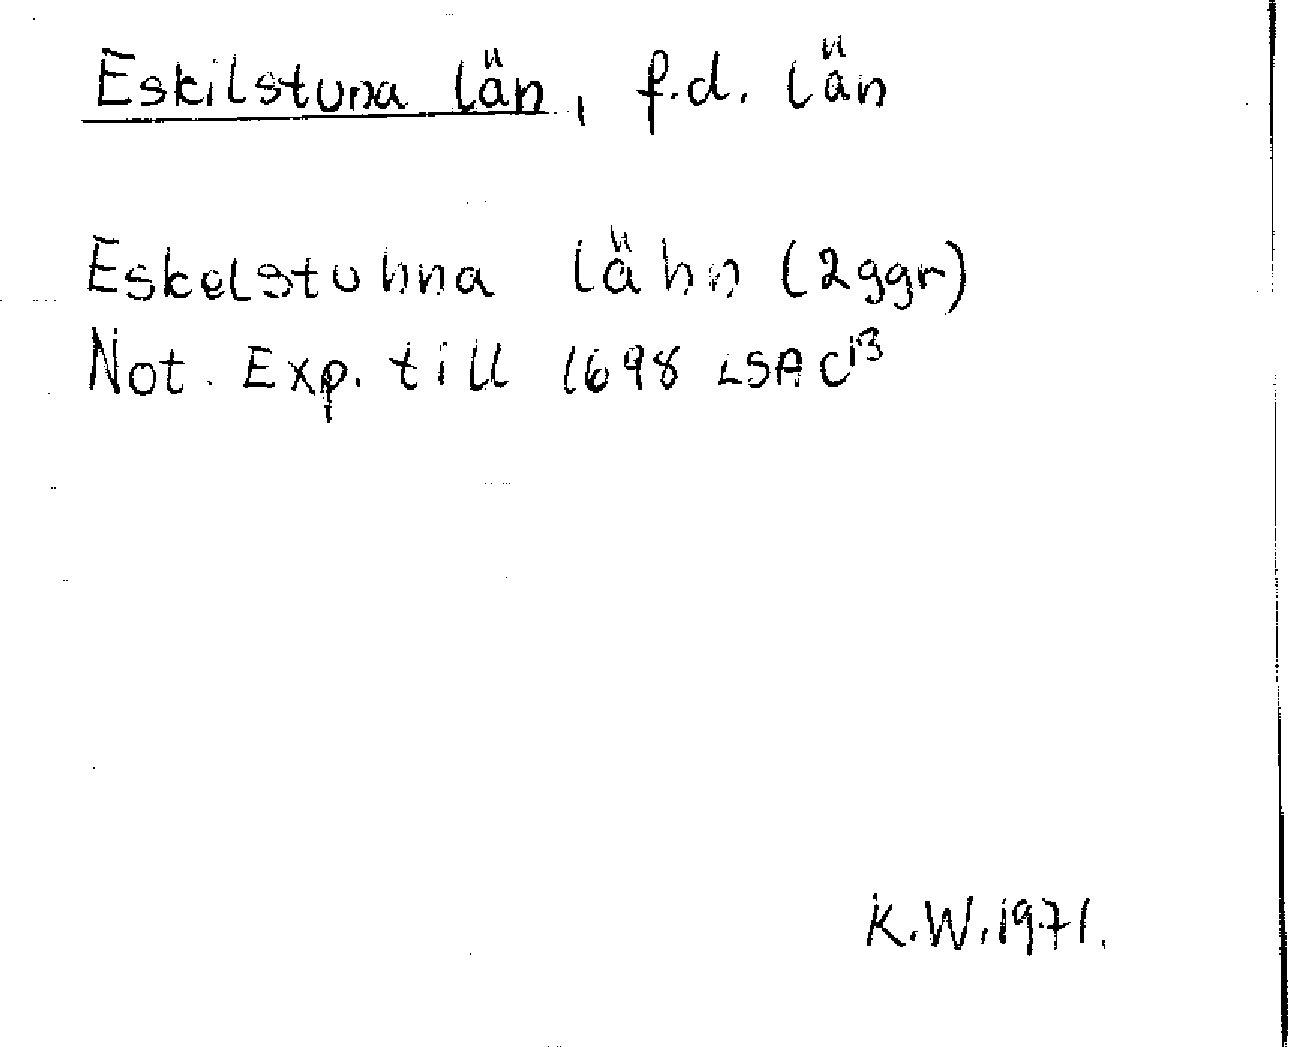 Eskilstuna län, f.d. län
Eskelstuhna lähn (2ggr)
Not. Exp. till 1698 LSA C13
K.W. 1971.